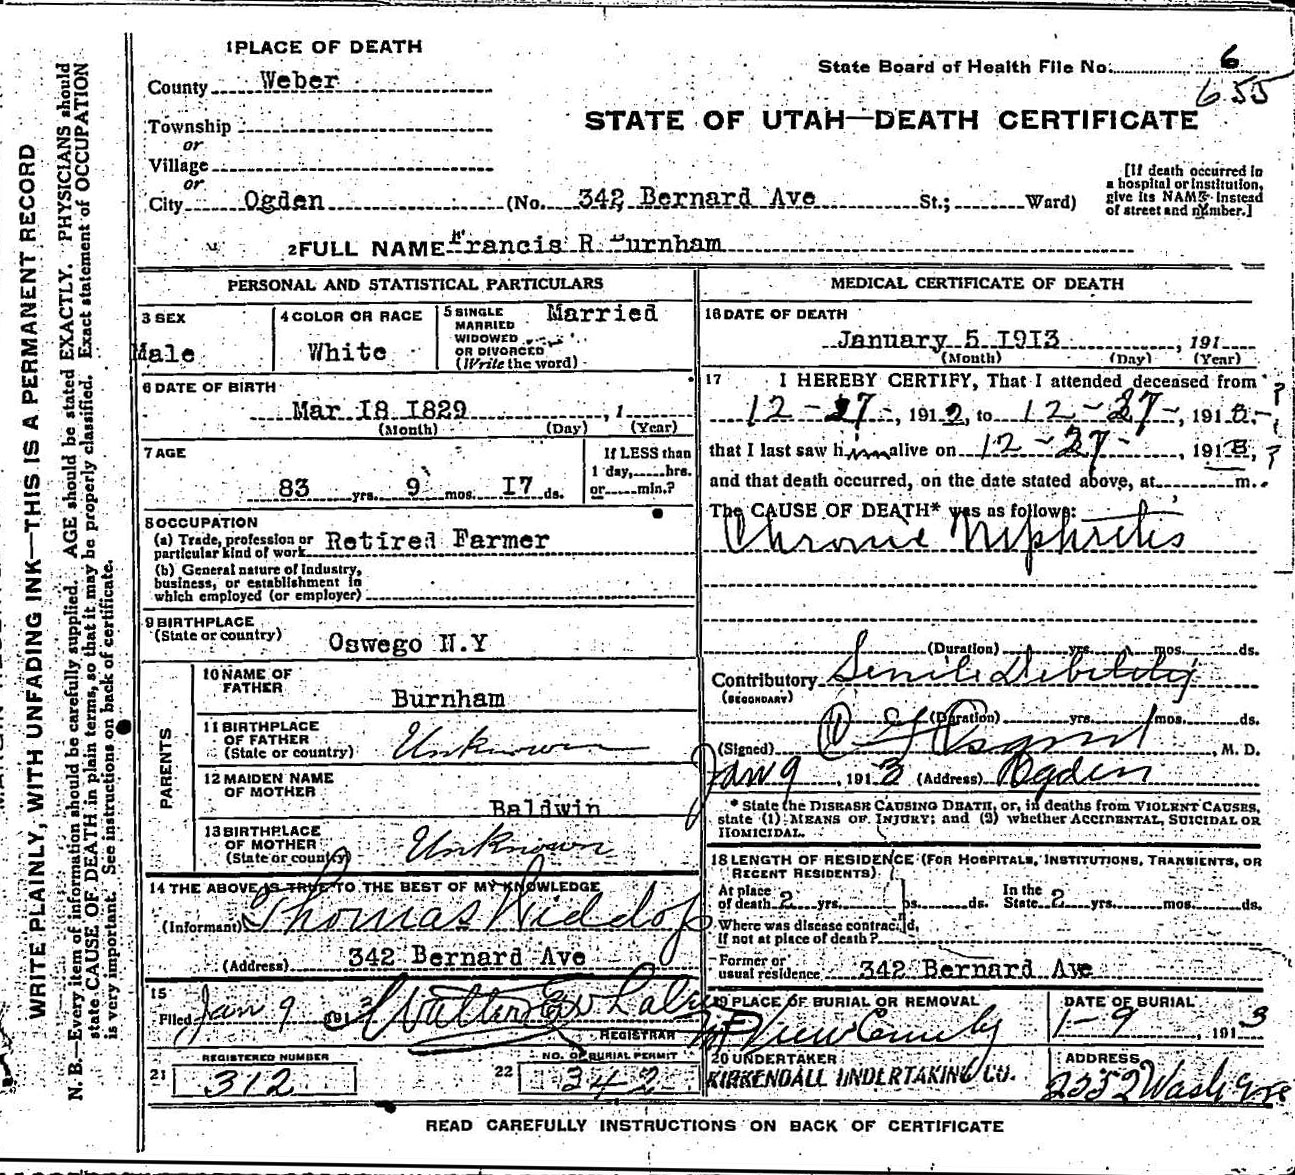 1 PLACE OF DEATH
County Weber
State Board of Health File No. 6
655
Township
or
Village
or
STATE OF UTAH—DEATH CERTIFICATE
[If death occurred in a hospital or institution, give its NAME instead of street and number.]
City Ogden (No. 342 Bernard Ave St.; Ward)
2 FULL NAME Francis R Burnham
PERSONAL AND STATISTICAL PARTICULARS
3 SEX
Male
4 COLOR OR RACE
White
5 SINGLE
MARRIED
WIDOWED
OR DIVORCED
(Write the word)
Married
6 DATE OF BIRTH
Mar I8 I829 , 1
(Month) (Day) (Year)
7 AGE
83 yrs. 9 mos. I7 ds.
If LESS than
1 day, hrs.
or min.?
8 OCCUPATION
(a) Trade, profession or
particular kind of work Retired Farmer
(b) General nature of industry,
business, or establishment in
which employed (or employer)
9 BIRTHPLACE
(State or country) Oswego N.Y
PARENTS
10 NAME OF
FATHER
Burnham
11 BIRTHPLACE
OF FATHER
(State or country) Unknown
12 MAIDEN NAME
OF MOTHER
Baldwin
13 BIRTHPLACE
OF MOTHER
(State or country) Unknown
14 THE ABOVE IS TRUE TO THE BEST OF MY KNOWLEDGE
(Informant) Thomas Widdop
(Address) 342 Bernard Ave
15
Filed Jan 9 191 3
REGISTRAR
REGISTERED NUMBER
21 312
NO. OF BURIAL PERMIT
22 342
MEDICAL CERTIFICATE OF DEATH
16 DATE OF DEATH
January 5 I9I3 , 191
(Month) (Day) (Year)
17 I HEREBY CERTIFY, That I attended deceased from
12-27- , 191 2, to 12-27- , 191 ?
that I last saw him alive on 12-27- , 191 , ?
and that death occurred, on the date stated above, at m.
The CAUSE OF DEATH* was as follows:
Chronic Niphritis
(Duration) yrs. mos. ds.
Contributory Senile Debility
(SECONDARY)
(Duration) yrs. mos. ds.
(Signed) , M. D.
Jan 9 , 191 3 (Address) Ogden
* State the DISEASE CAUSING DEATH, or, in deaths from VIOLENT CAUSES,
state (1) MEANS OF INJURY; and (2) whether ACCIDENTAL, SUICIDAL OR
HOMICIDAL.
18 LENGTH OF RESIDENCE (FOR HOSPITALS, INSTITUTIONS, TRANSIENTS, OR
RECENT RESIDENTS)
At place
of death 2 yrs. mos. ds.
In the
State 2 yrs. mos. ds.
Where was disease contracted,
If not at place of death?
Former or
usual residence 342 Bernard Ave
19 PLACE OF BURIAL OR REMOVAL
Mt View Cemety
DATE OF BURIAL
1-9 191 3
20 UNDERTAKER
KIRKENDALL UNDERTAKING CO.
ADDRESS
2352 Wash Ave
READ CAREFULLY INSTRUCTIONS ON BACK OF CERTIFICATE
WRITE PLAINLY, WITH UNFADING INK—THIS IS A PERMANENT RECORD
N. B.—Every item of information should be carefully supplied. AGE should be stated EXACTLY. PHYSICIANS should
state CAUSE OF DEATH in plain terms, so that it may be properly classified. Exact statement of OCCUPATION
is very important. See instructions on back of certificate.